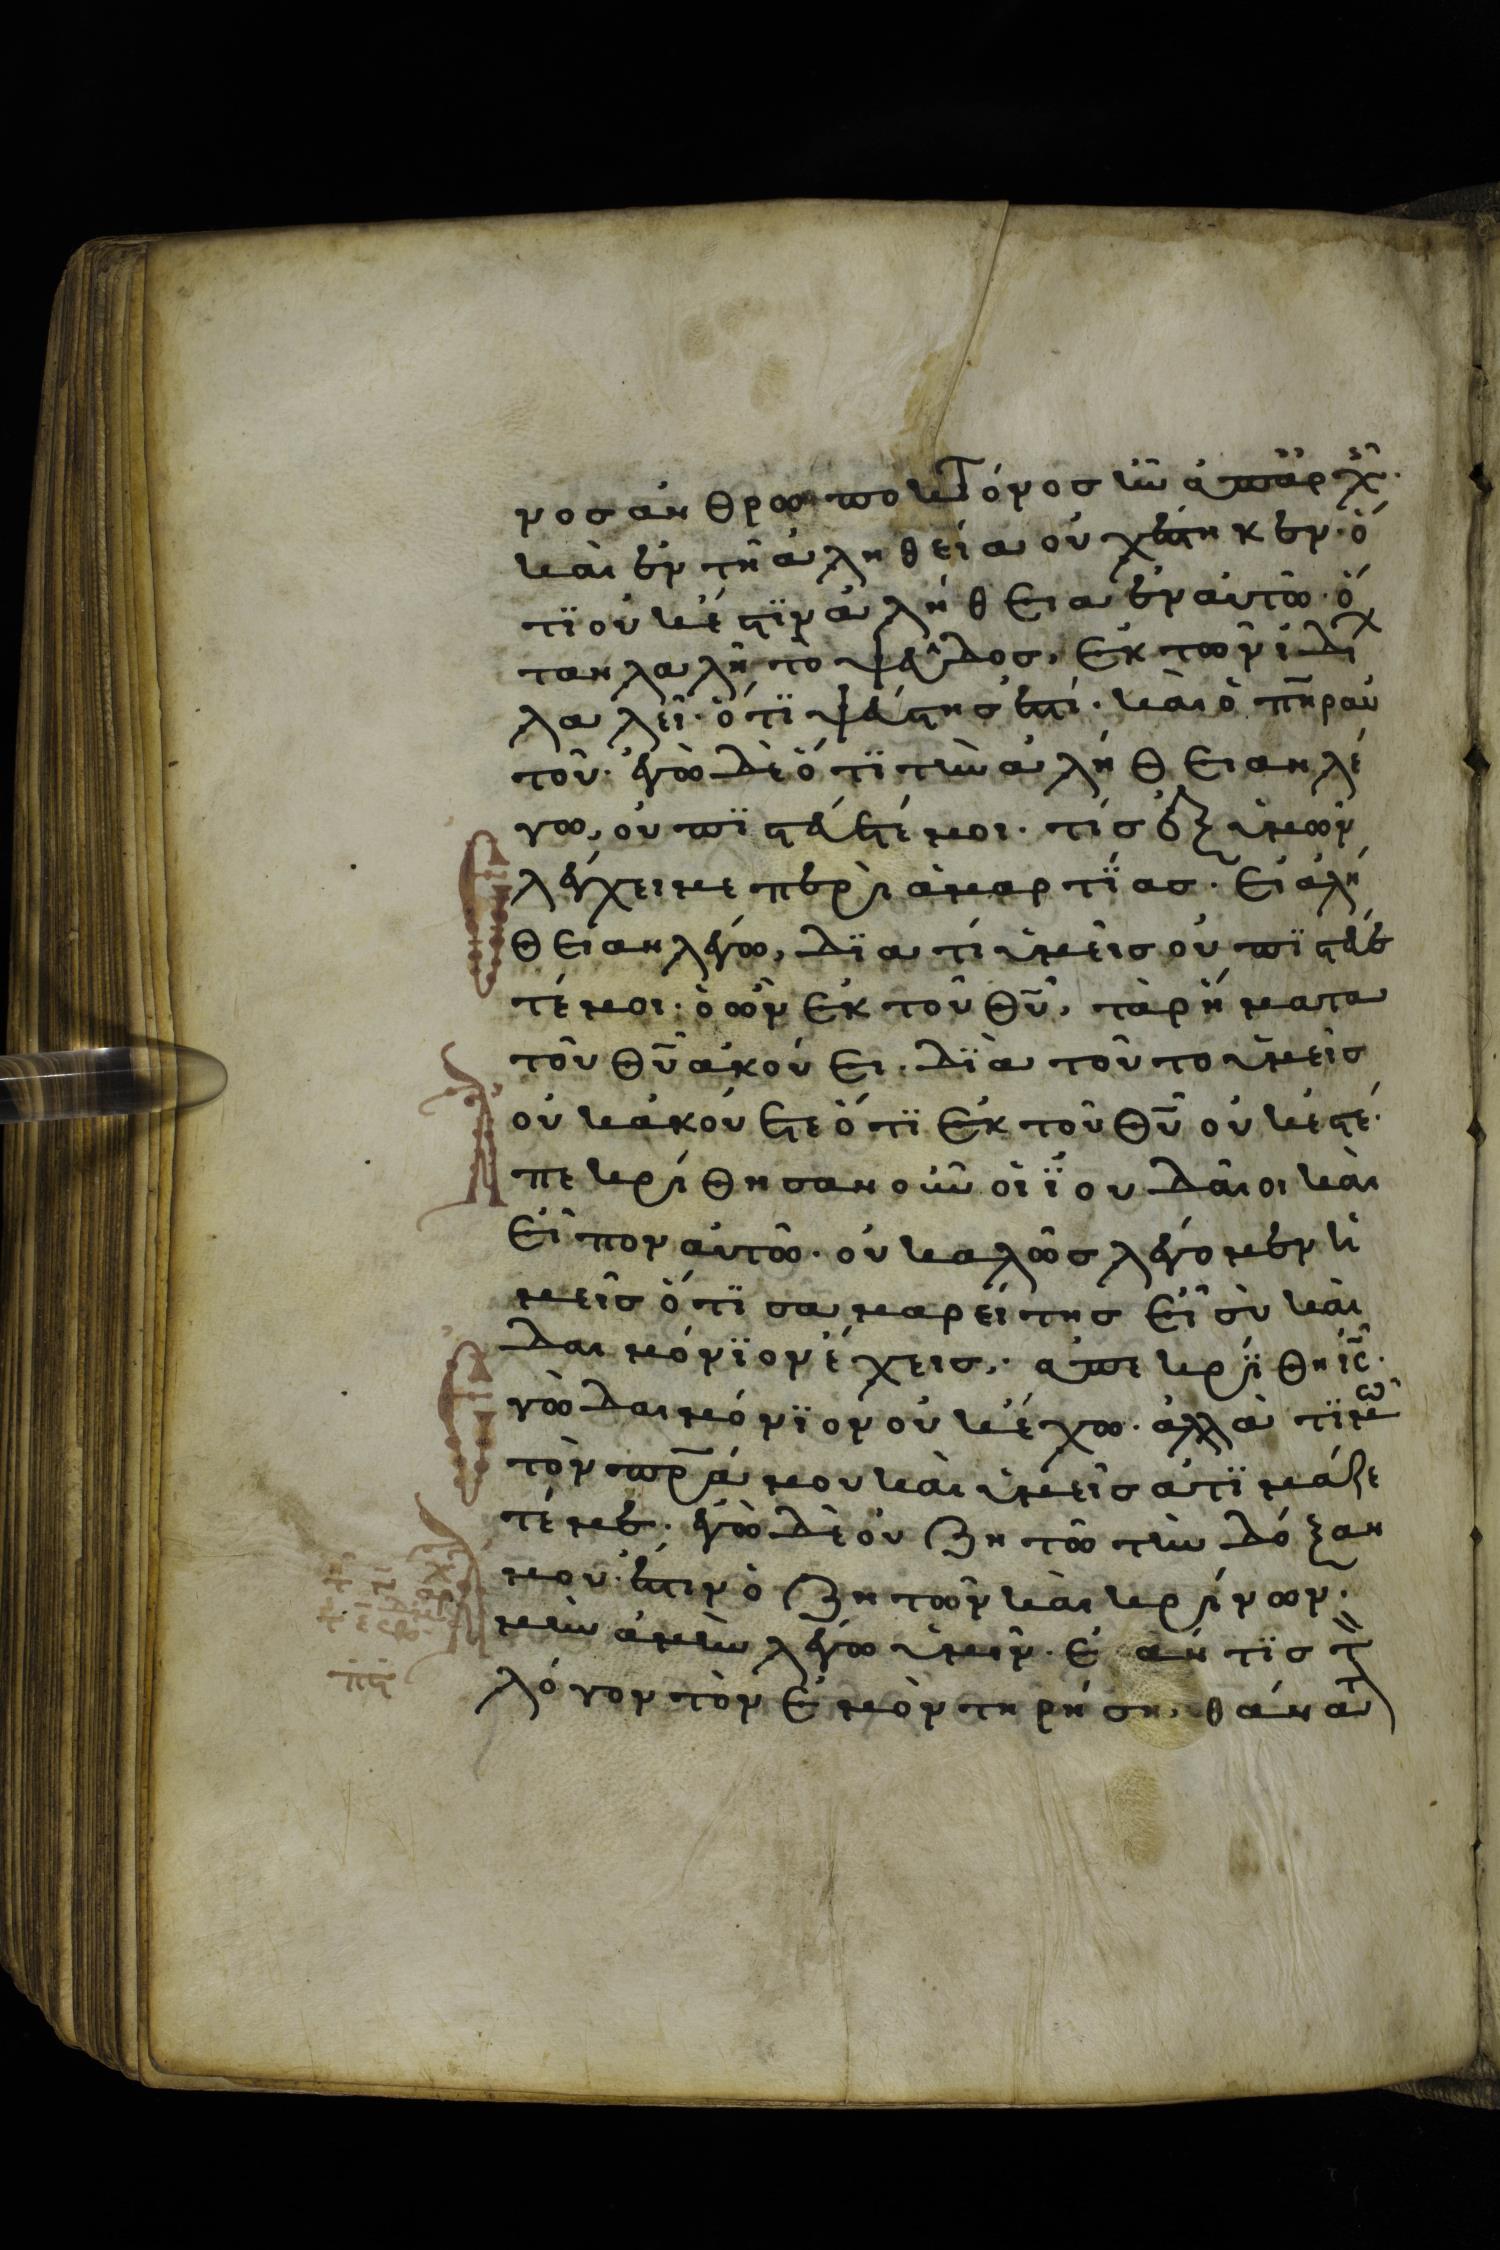 νος ἀνθρωποκτόνος ἦν ἀπ ἀρχῆ·
καὶ ἐν τῆ ἀληθεία οὐχ ἕστηκεν· ὅ
τϊ οὐκ ἔστϊν ἀλήθεια ἐν αὐτῶ· ὅ
ταν λαλῆ τὸ ψεῦδος, ἐκ τῶν ἰδί
λαλεῖ· ὅτϊ ψεύστης ἐστί· καὶ ὁ πη̅ρ αὐ
τοῦ· ἐγὼ δὲ ὅτϊ τὴν ἀλήθειαν λέ
γω, οὐ πϊστεύετέ μοι· τίς ἐξ ὑμῶν
λέγχει με περὶ ἁμαρτΐας· εἰ ἀλή
θειαν λέγω, δϊατί ὑμεῖς οὐ πϊστεύε
τέ μοι· ὁ ὢν ἐκ τοῦ θυ̅, τὰ ρήματα
τοῦ θυ̅ ἀκούει· δϊὰ τοῦτο ὑμεῖς
οὐκ ἀκούετε ὅτϊ ἐκ τοῦ θυ̅ οὐκ ἐστέ·
πεκρίθησαν οὖν οἱ ϊουδαῖοι καὶ
εἶπον αὐτῶ· οὐ καλῶς λέγομεν ἡ
μεῖς ὅτϊ σαμαρείτης εἶ σὺ καὶ
δαιμόνϊον ἔχεις· ἀπεκρΐθη ις̅·
γὼ δαιμόνϊον οὐκ ἔχω· ἀλλὰ τϊμῶ
τὸν πρ̅α μου καὶ ὑμεῖς ἀτϊμάζε
τέ με· ἐγὼ δὲ οὐ ζητῶ τὴν δόξαν
μου· ἔστιν ὁ ζητῶν καὶ κρίνων·
μὴν ἀμὴν λέγω ὑμῖν· ἐάν τϊς τ
λόγον τὸν ἐμὸν τηρήση, θάνατ